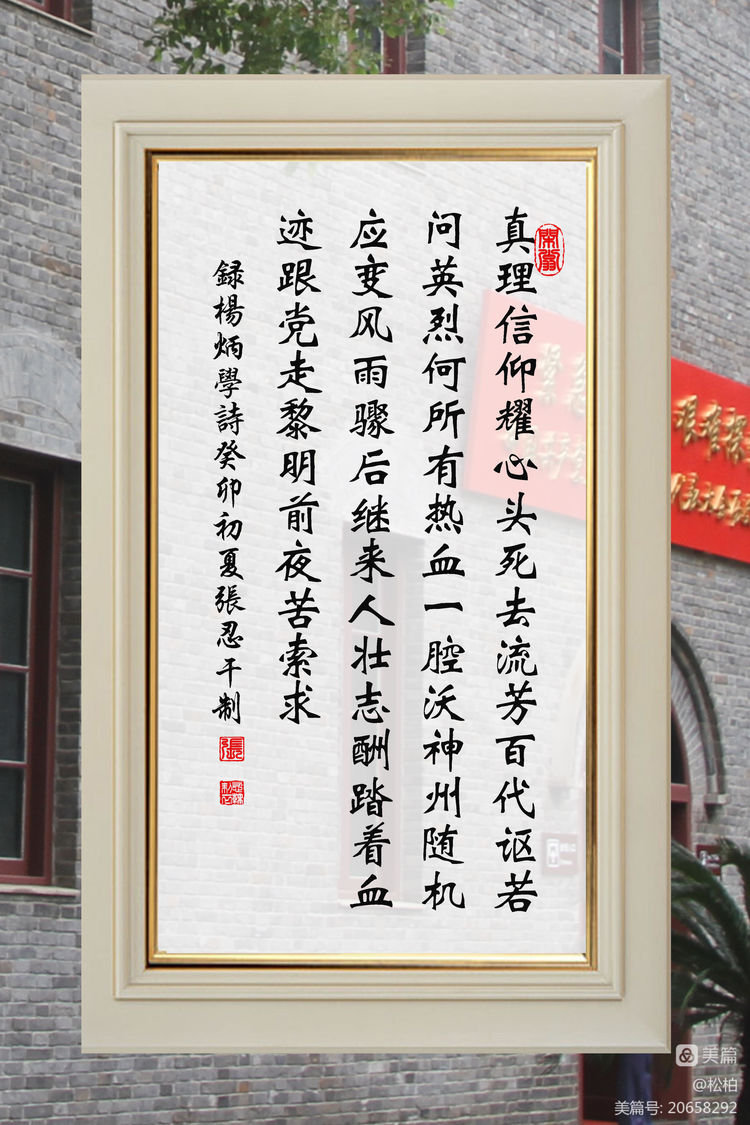 真理信仰耀心头死去流芳百代讴若
问英烈何所有热血一腔沃神州随机
应变风雨骤后继来人壮志酬踏着血
迹跟党走黎明前夜苦索求
録楊炳學詩癸卯初夏張忍干制
張
美篇
@松柏
美篇号: 20658292